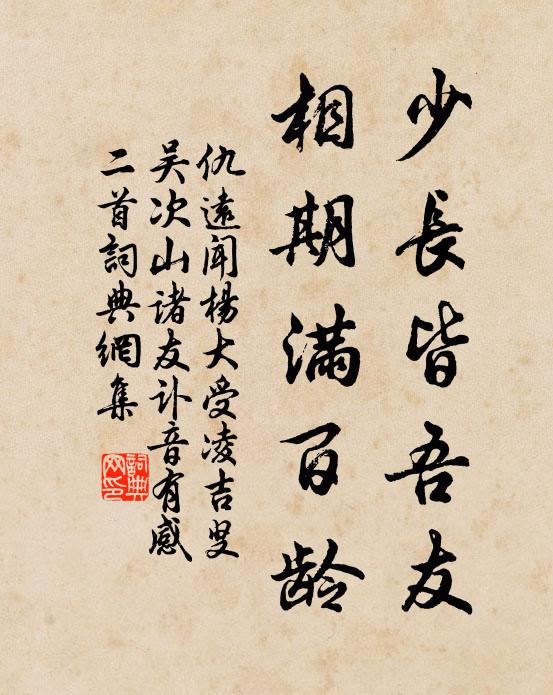 少長皆吾友
相期满百龄
仇遠闻楊大受凌吉叟
吴次山諸友讣音有感
二首詞典網集
詞典网印